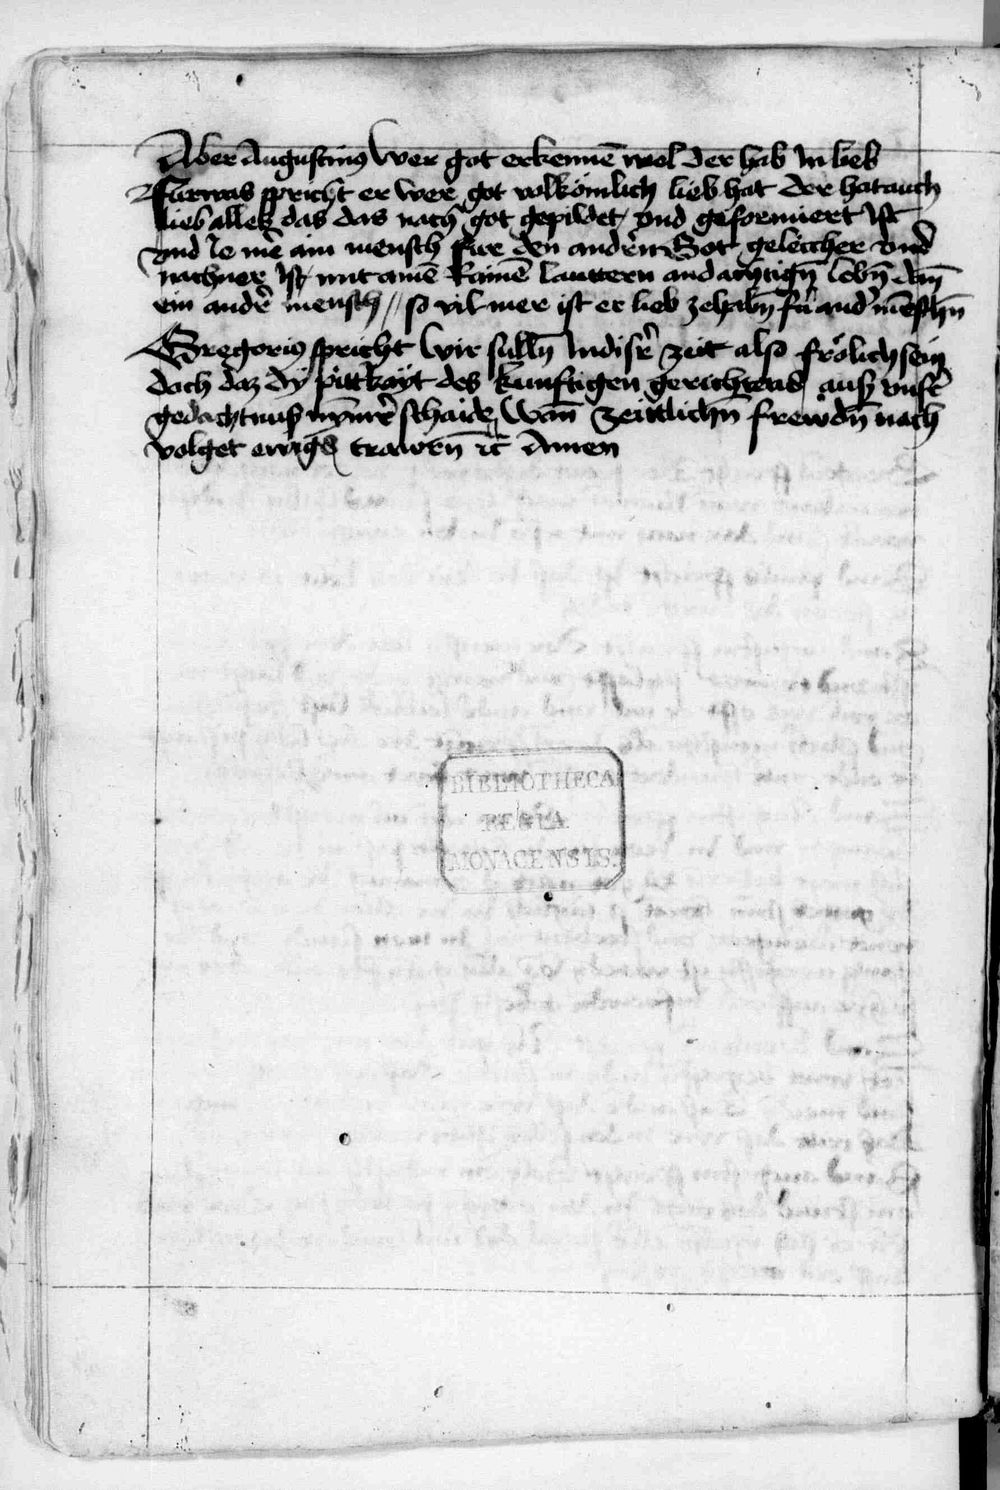 Aber Augustinus Wer got erkennē wol der hab In lieb
Fürwas spricht er wer got volkömlich lieb hat der hat auch
lieb allez das das nach got gepildet vnd geformiert Ist
vnd Ie mē ain mensch für den andern Got geleicher vnd
nachner Ist mit amē Rainē lauttern andachtign̄ lebn̄ dan̄
ein andr̄ mensch // so vil mer ist er lieb zehabn̄ fur andr̄ mēschn̄
Gregorius spricht Wir sulln̄ In disr̄ zeit also frölich sein
doch daz dy pittkayt des kunftigen gerichtend auß vnsr̄
gedachtnuß nymr̄ schaide Wan̄ zeittlichn̄ frewdn̄ nach
volget ewigs trawrn̄ rc̄ Amen
BIBLIOTHECA
REGIA
MONACENSIS.